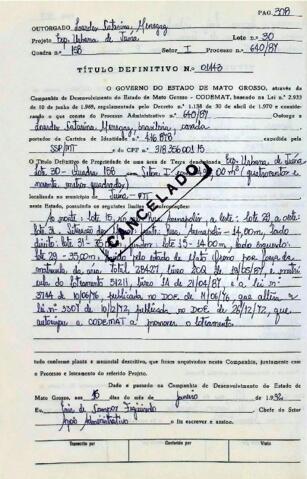 PAG 308
OUTORGADO Lourdes Catarina Menegaz
Projeto Exp. Urbana de Juina Lote n.º 30
Quadra n.º 158 Setor I Processo n.º 640/87
TÍTULO DEFINITIVO N.º 01443
O GOVERNO DO ESTADO DE MATO GROSSO, através da
Companhia de Desenvolvimento do Estado de Mato Grosso - CODEMAT, baseado na Lei n.º 2.933
de 10 de junho de 1969, regulamentada pelo Decreto n.º 1.138 de 30 de abril de 1970 e consideran-
do o que consta do Processo Administrativo n.º 640/87 Outorga a
Lourdes Catarina Menegaz, brasileira, casada
portador da Carteira de Identidade n.º 416878 expedida pela
SSP/MT e do CPF n.º 318356001.15
O Título Definitivo de Propriedade de uma área de Terra denominada Exp. Urbana de Juina
lote 30 - Quadra 158 - Setor I, 00 m² (quatrocentos e
noventa metros quadrados)
localizada no município de Juina - MT
neste Estado, possuindo os seguintes limites e confrontações:
CANCELADO
ao norte: lote 15, leste: lote 29, a oeste:
lote 31. - 14,00m, lado
direito: lote 31 - 35, lote 15 - 14,00m, lado esquerdo:
lote 29 - 35,00m. pelo estado de Mato Grosso por força da
matrícula da área total 28427, livro 2DQ 19/05/87, e matrí
cula do loteamento 31211, livro 1A de 21/04/87 e a lei nº
3744 de 10/06/76 publicada no D.O.E. 11/06/76 que altera a
lei nº 3307 de 10/2/72 publicada no DOE de 26/12/72, que
autoriza a CODEMAT a promover o loteamento.
tudo conforme planta e memorial descritivo, que foram arquivados nesta Companhia, juntamente com
o Processo e loteamento do referido Projeto.
Dado e passado na Companhia de Desenvolvimento do Estado de
Mato Grosso, aos 16 dias do mês de janeiro de 1.9
Eu, Figueiredo Chefe do Setor
Apoio Administrativo o fiz escrever e assino.
Transcrito por Conferido por Visto